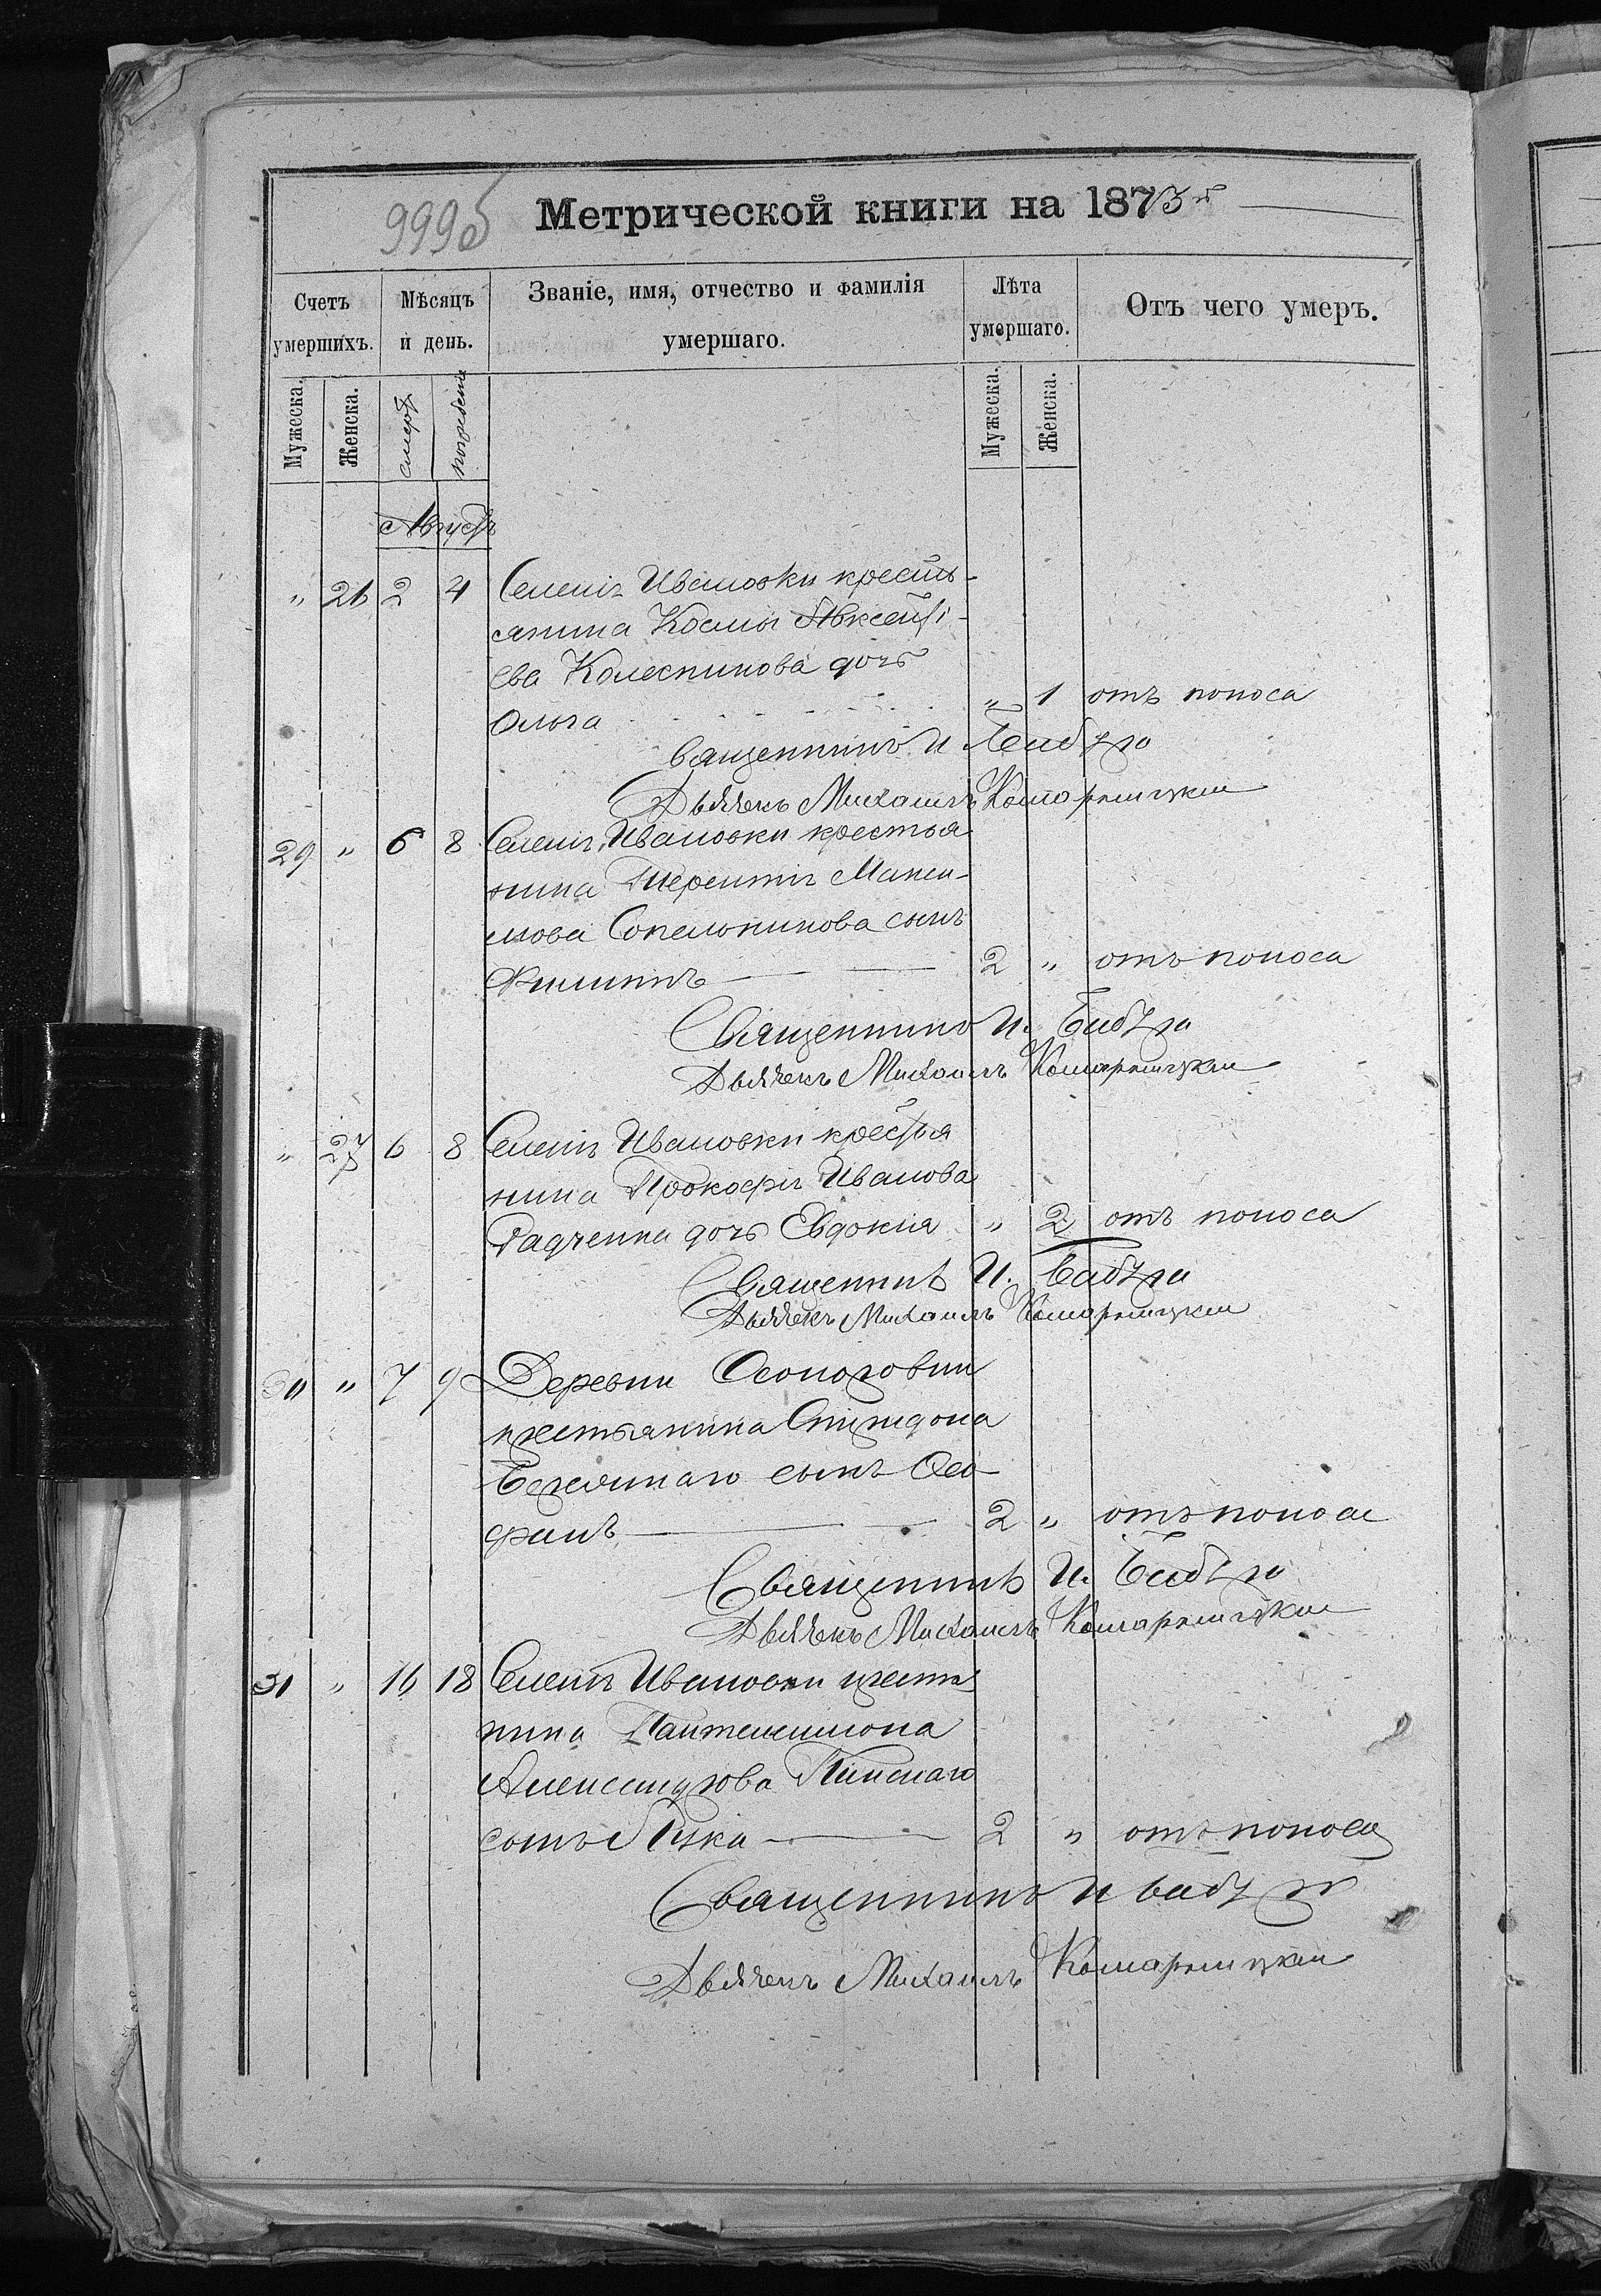 999б Метрической книги на 1873 г
Счетъ умершихъ. Мѣсяцъ и день. Званіе, имя, отчество и фамилія умершаго. Лѣта умершаго. Отъ чего умеръ.
Мужеска. Женска. смерт. погребенія Мужеска. Женска.
Августъ
„ 26 2 4 Селенія Ивановки кресть-
янина Космы Авксенті-
ева Колесникова дочь
Ольга „ 1 отъ поноса
Священникъ И
Дьячекъ Михаилъ Комарницкій
29 „ 6 8 Селенія Ивановки крестья
нина Терентія Макси-
мова Сопельникова сынъ
Филиппъ 2 „ отъ поноса
Священникъ И.
Дьячекъ Михаилъ Комарницкій
„ 27 6 8 Селенія Ивановки крестья
нина Прокофія Иванова
Радченка дочь Евдокія „ 2 отъ поноса
Священникъ И.
Дьячекъ Михаилъ Комарницкій
30 „ 7 9 Деревни
крестьянина Спиридона
сынъ Ѳео
фанъ 2 „ отъ поноса
Священникъ И.
Дьячекъ Михаилъ Комарницкій
31 „ 16 18 Селенія Ивановки крестья
нина Пантелеимона
Александрова
сынъ Лука 2 „ отъ поноса
Священникъ И
Дьячекъ Михаилъ Комарницкій